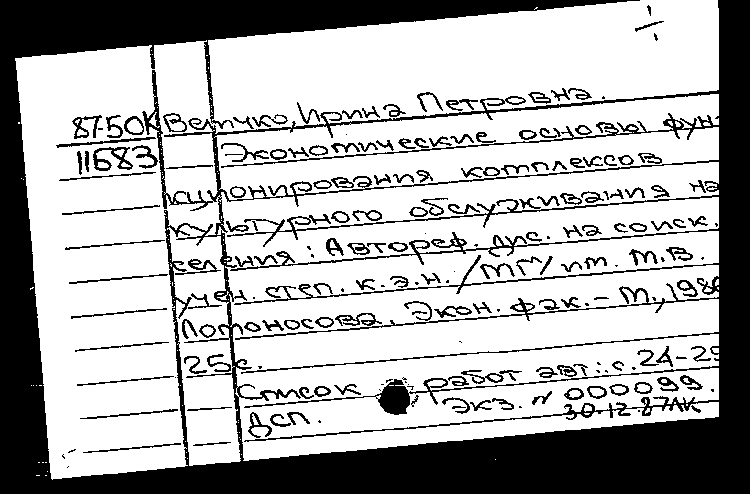 87-50К Величко, Ирина Петровна.
11683 Экономические основы фун-
кционирования комплексов
культурного обслуживания на
селения: Автореф. дис. на соиск.
учен. степ. к.э.н. /МГУ им. М.В.
Ломоносова. Экон. фак. - М., 198
25с.
Список работ авт.: с. 24-25
ДСП. Экз. N 000099.
30.12.87ЛК